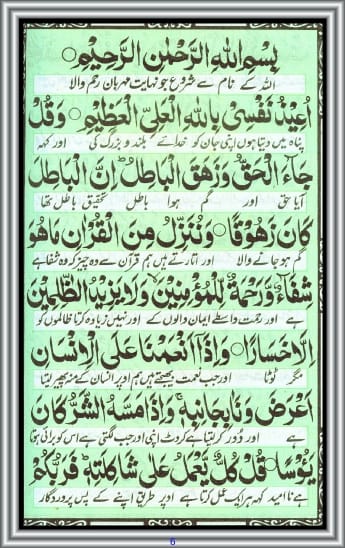 بِسْمِ اللهِ الرَّحْمٰنِ الرَّحِيْمِ ○
اللہ کے نام سے شروع جو نہایت مہربان رحم والا
اُعِيْذُ نَفْسِيْ بِاللهِ الْعَلِيِّ الْعَظِيْمِ ○ وَقُلْ
پناہ میں دیتا ہوں اپنی جان کو خدائے بلند و بزرگ کی اور کہہ
جَآءَ الْحَقُّ وَزَهَقَ الْبَاطِلُ اِنَّ الْبَاطِلَ
آیا حق اور گم ہوا باطل تحقیق باطل تھا
كَانَ زَهُوْقًا ○ وَنُنَزِّلُ مِنَ الْقُرْاٰنِ مَاهُوَ
گم ہو جانے والا اور اتارتے ہیں ہم قرآن سے وہ چیز کہ وہ شفا ہے
شِفَآءٌ وَّرَحْمَةٌ لِّلْمُؤْمِنِيْنَ وَلَا يَزِيْدُ الظّٰلِمِيْنَ
ہے اور رحمت واسطے ایمان والوں کے اور نہیں زیادہ کرتا ظالموں کو
اِلَّا خَسَارًا ○ وَاِذَآ اَنْعَمْنَا عَلَى الْاِنْسَانِ
مگر ٹوٹا اور جب نعمت بھیجتے ہیں ہم اوپر انسان کے منہ پھیر لیتا
اَعْرَضَ وَنَاٰ بِجَانِبِهٖ وَاِذَا مَسَّهُ الشَّرُّ كَانَ
ہے اور دور کر لیتا ہے کروٹ اپنی اور جب لگتی ہے اس کو برائی ہوتا
يَئُوْسًا ○ قُلْ كُلٌّ يَّعْمَلُ عَلٰى شَاكِلَتِهٖ فَرَبُّكُمْ
ہے نا امید کہہ ہر ایک عمل کرتا ہے اوپر طریق اپنے کے پس پروردگار
6